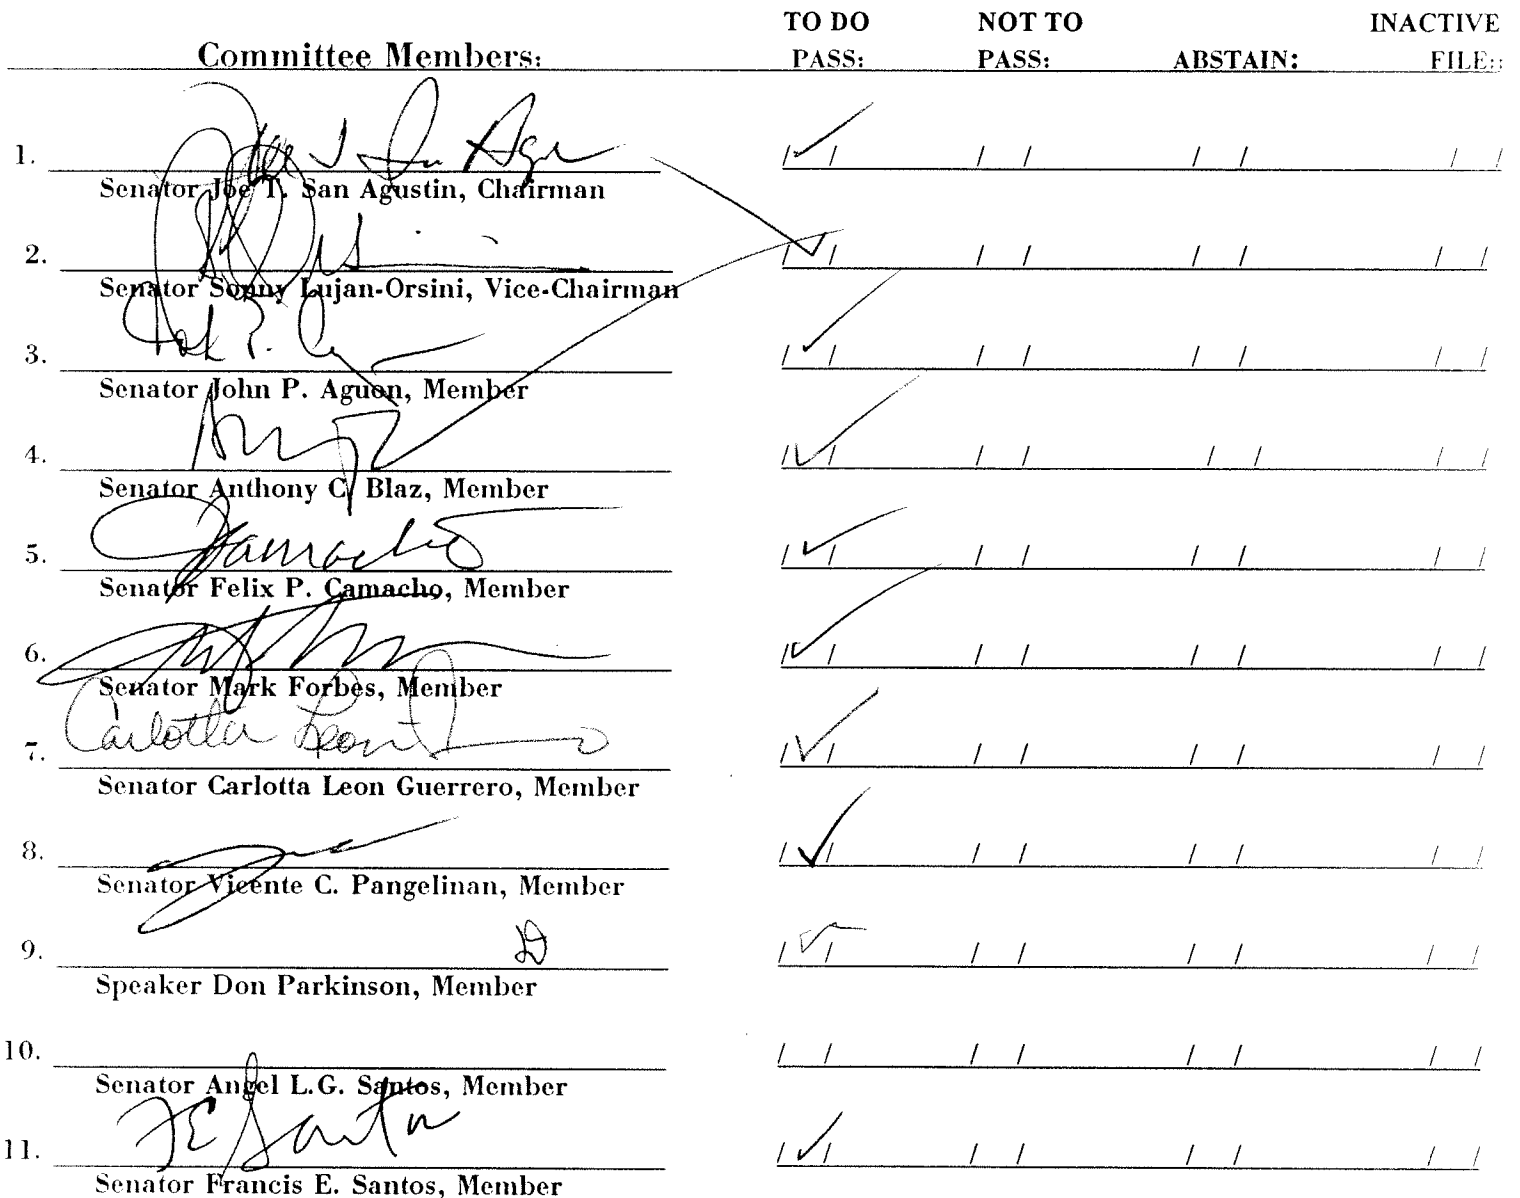 TO DO NOT TO INACTIVE
Committee Members: PASS: PASS: ABSTAIN: FILE::
1. Joe T. San Agus / / / / / / / /
Senator Joe T. San Agustin, Chairman
2. / / / / / / / /
Senator Sonny Lujan-Orsini, Vice-Chairman
3. / / / / / / / /
Senator John P. Aguon, Member
4. / / / / / / / /
Senator Anthony C. Blaz, Member
5. Camacho / / / / / / / /
Senator Felix P. Camacho, Member
6. / / / / / / / /
Senator Mark Forbes, Member
7. Carlotta Leon / / / / / / / /
Senator Carlotta Leon Guerrero, Member
8. / / / / / / / /
Senator Vicente C. Pangelinan, Member
9. / / / / / / / /
Speaker Don Parkinson, Member
10. / / / / / / / /
Senator Angel L.G. Santos, Member
11. F E Santos / / / / / / / /
Senator Francis E. Santos, Member